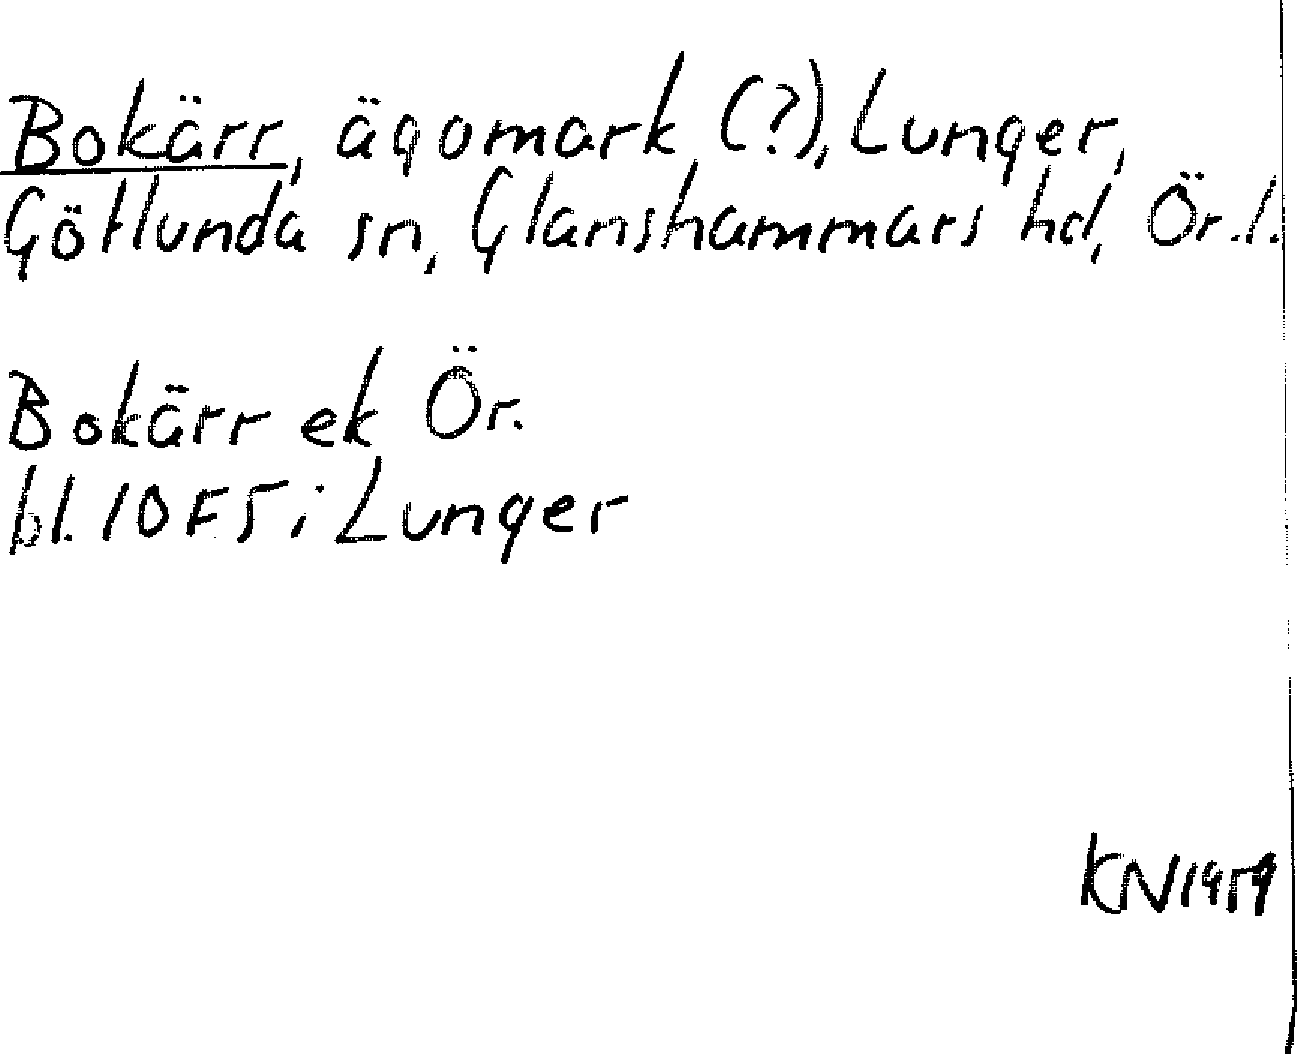 Bokärr, ägomark (?), Lunger,
Götlunda sn, Glanshammars hd, Ör. l.
Bokärr ek Ör.
bl. 10F5 i Lunger
KN 1959